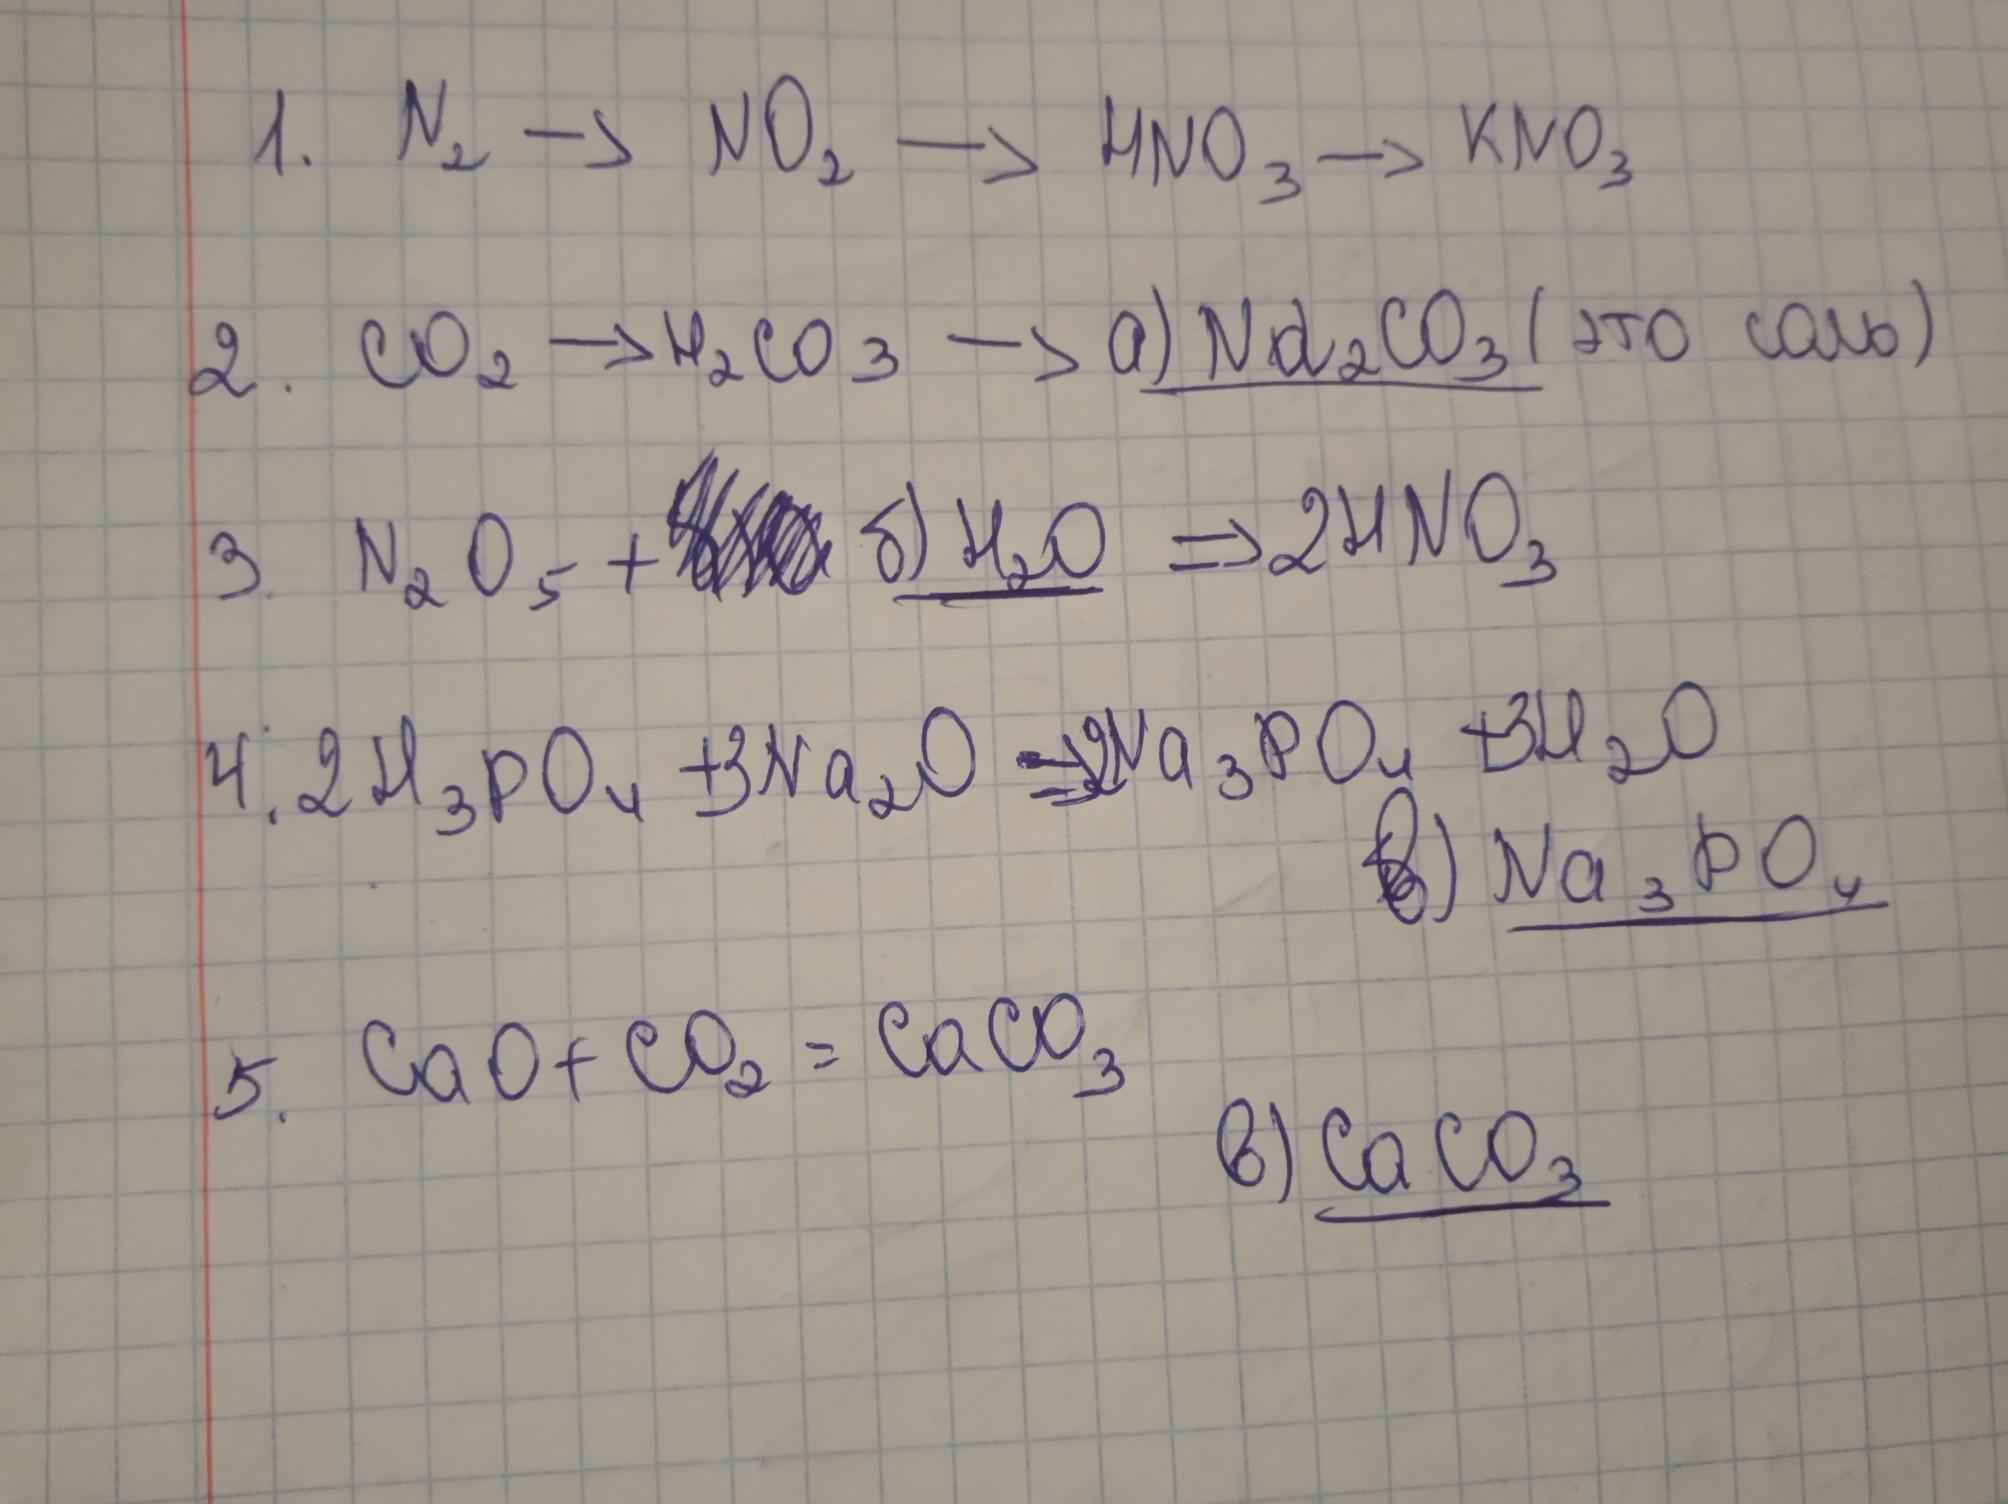 1. N₂ → NO₂ → HNO₃ → KNO₃
2. CO₂ → H₂CO₃ → а) Na₂CO₃ (это соль)
3. N₂O₅ + б) H₂O => 2HNO₃
4. 2H₃PO₄ + 3Na₂O => 2Na₃PO₄ + 3H₂O
в) Na₃PO₄
5. CaO + CO₂ = CaCO₃
в) CaCO₃